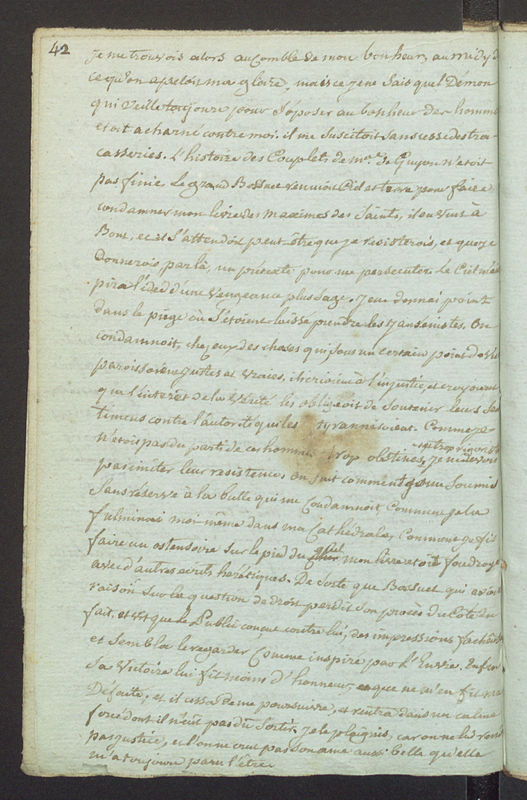 42
je me trouvois alors au Comble de mon bonheur, au midy d
ce qu'on apeloit ma gloire, mais ce je ne sais quel Démon
qui veille toujours pour s'oposer au bonheur des homme
etoit acharné contre moi. il me suscitoit sans cesse des tra-
casseries. L'histoire des Couplets de Me de Guyon n'etoit
pas finie. Le grand Bossuet remuoit Ciel et terre pour faire
condamner mon livre des maximes des Saints, il en vint à
Bout, et il S'attendoit peut être que je resisterois, et que je
Donnerois par là, un prétexte pour me persecuter. Le Ciel m'in
pira l'idée d'une vengeance plus sage. je ne donnai point
dans le piege où S'étoient laissé prendre les jansenistes. On
condamnoit, chez eux des choses qui sous un certain point de vue
paroissoient justes et vraies, ils crioient à l'injustice, et croyoient
que l'intérêt de la vérité les obligeoit de soutenir leurs Sen
timens contre l'autorité qui les tyrannisoient. Comme je
n'etois pas du parti de ces hommes trop obstinés, je ne devois
pas imiter leur resistence. on sait comment je me soumis
Sans réserve à la bulle qui me Condamnoit, Comme je la
fulminai moi même dans ma Cathédrale, Comme je fis
faire un ostensoire sur le pied du quel mon livre etoit foudroyé
avec d'autres ecrits hérétiques. De sorte que Bossuet qui avoit
raison sur la question de droit perdit son procès du côté du
fait, et que le Public conçut contre lui, des impressions facheuses
et sembla le regarder Comme inspiré par l'Envie. Enfin
Sa Victoire lui fit moins d'honneur, que ne m'en fit ma
Défaite, et il cessa de me poursuivre, et rentra dans un calme
forcé dont il n'eut pas du Sortir, je le plaignis, car on ne lui rend
pas justice, et l'on ne crut pas son ame aussi belle qu'elle
m'a toujours paru l'être.